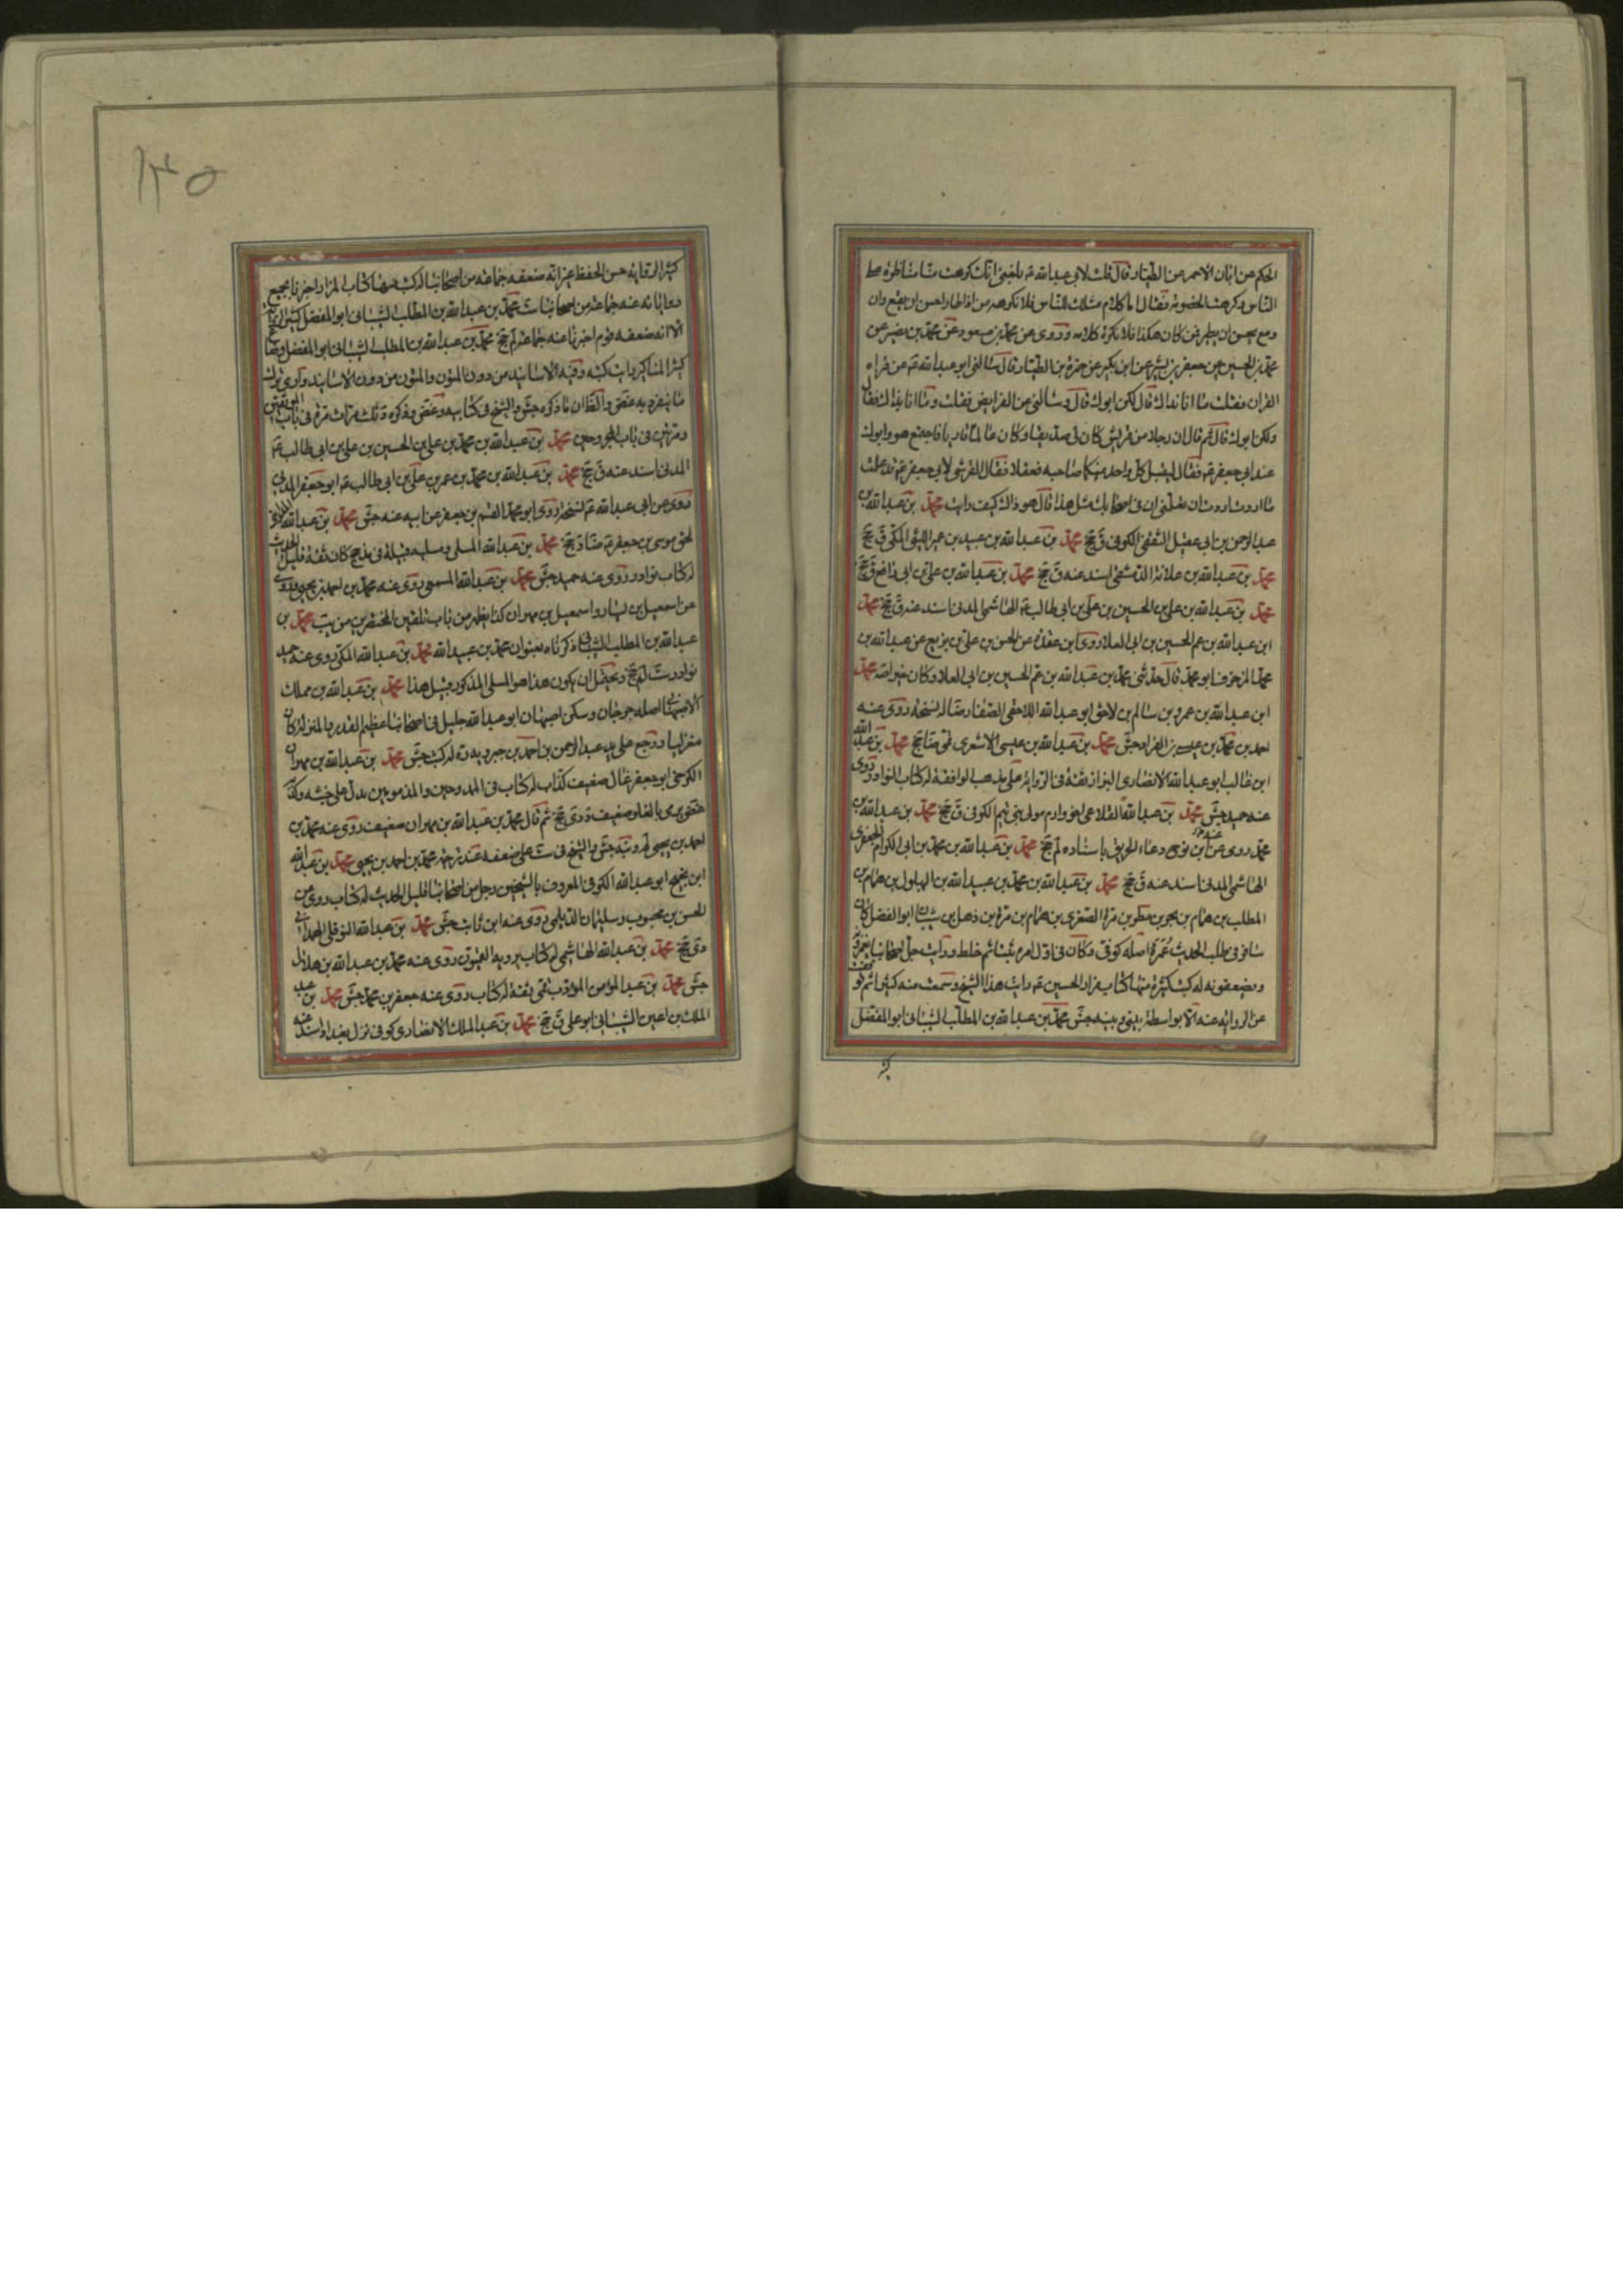 الحكم عن ابان الاحمر عن الطيار قال قلت لابي عبد الله ع بلغني انك كرهت منا مناظرة
الناس وكرهت الخصومة فقال اما كلام مثلك للناس فلا نكرهه من اذا طار احسن ان يقع وان
وقع يحسن ان يطير فمن كان هكذا فلا نكره كلامه وروى عن محمد بن مسعود عن محمد بن نصير عن
محمد بن الحسين عن جعفر بن بشير عن ابن بكير عن حمزة بن الطيار قال سالني ابو عبد الله ع عن قراءة
القران فقلت ما انا بذاك قال لكن ابوك قال وسالني عن الفرايض فقلت وما انا بذاك فقال
ولكن ابوك قال ثم قال ان رجلا من قريش كان لي صديقا وكان عالما قاريا فاجتمع هو وابوك
عند ابي جعفر ع فقال ليقبل كل واحد منكما صاحبه ففعلا فقال القرشي لابي جعفر ع قد علمت
ما اردت اردت ان تعلمني ان في اصحابك مثل هذا قال هو ذاك كيف رايت محمد بن عبد الله بن
عبد الرحمن بن ابي عقيل الثقفي الكوفي ق جخ محمد بن عبد الله بن عبيد بن عمير الليثي المكي ق جخ
محمد بن عبد الله بن علاثة الدمشقي اسند عنه ق جخ محمد بن عبد الله بن علي بن ابي رافع ق جخ
محمد بن عبد الله بن علي بن الحسين بن علي بن ابي طالب ع الهاشمي المدني اسند عنه ق جخ محمد
ابن عبد الله بن عم الحسين بن ابي العلا روى ابن عقدة عن الحسن بن علي بن بزيع عن عبد الله بن
محمد المزخرف ابو محمد قال حدثني محمد بن عبد الله بن عم الحسين بن ابي العلا وكان خيرا صه محمد
ابن عبد الله بن عمرو بن سالم بن لاحق ابو عبد الله اللاحقي الصفار ضا له نسخة روى عنه
احمد بن محمد بن عيسى بن الغراد جش محمد بن عبد الله بن عيسى الاشعري قمي ضا جخ محمد بن عبد الله
ابن غالب ابو عبد الله الانصاري البزاز ثقة في الرواية على مذهب الواقفة له كتاب النوادر روى
عنه حميد جش محمد بن عبد الله القلاعي اخو ادم مولى بني تميم الكوفي ق جخ محمد بن عبد الله بن
محمد روى عن ابن نوح دعاء الحريق باسناده لم جخ محمد بن عبد الله بن محمد بن ابي الكرام الجعفري
الهاشمي المدني اسند عنه ق جخ محمد بن عبد الله بن محمد بن عبيد الله بن البهلول بن همام بن
المطلب بن همام بن بحر بن مطر بن مرة الصغرى بن همام بن مرة بن ذهل بن شيبان ابو المفضل كان
سافر في طلب الحديث عمره اصله كوفي وكان في اول امره ثبتا ثم خلط ورايت جل اصحابنا يغمزونه
ويضعفونه له كتب كثيرة منها كتاب مزار الحسين ع رايت هذا الشيخ وسمعت منه كثيرا ثم توقفت
عن الرواية عنه الا بواسطة بيني وبينه جش محمد بن عبد الله بن المطلب الشيباني ابو المفضل
كثير
١٣٥
كثير الرواية حسن الحفظ غير انه ضعفه جماعة من اصحابنا له كتب منها كتاب المزار اخبرنا بجميع
رواياته عنه جماعة من اصحابنا ست محمد بن عبد الله بن المطلب الشيباني ابو المفضل كثير الرواية
الا انه ضعفه قوم اخبرنا عنه جماعة لم جخ محمد بن عبد الله بن المطلب الشيباني ابو المفضل وضاع
كثير المناكير رايت كتبه وفيه الاسانيد من دون المتون والمتون من دون الاسانيد وارى ترك
ما ينفرد به غض والظ ان ما ذكره جش والشيخ في كتابيه وغض
ومر في باب المجروحين محمد بن عبد الله بن محمد بن علي بن الحسين بن علي بن ابي طالب ع
المدني اسند عنه ق جخ محمد بن عبد الله بن محمد بن عمر بن علي بن ابي طالب ع ابو جعفر المدني
روى عن ابي عبد الله ع نسخة روى ابو محمد القسم بن جعفر عن ابيه عنه جش محمد بن عبد الله
لحق موسى بن جعفر ع ضا د جخ محمد بن عبد الله المسلي ومسلية قبيلة في مذحج كان ثقة قليل الحديث
له كتاب نوادر روى عنه حميد جش محمد بن عبد الله المسمعي روى عنه محمد بن احمد بن يحيى وروى
عن اسمعيل بن يسار واسمعيل بن مهران كذا يظهر من باب تلقين المحتضرين من يب محمد بن
عبد الله بن المطلب الشيباني ذكرناه بعنوان محمد بن عبيد الله محمد بن عبد الله المكي روى عنه حميد
نوادر ست لم جخ ويحتمل ان يكون هذا هو المسلي المذكور قبيل هذا محمد بن عبد الله بن مملك
الاصبهاني اصله جرجان وسكن اصبهان ابو عبد الله جليل في اصحابنا عظيم القدر والمنزلة كان
معتزليا ورجع على يد عبد الرحمن بن احمد بن جبرويه ره له كتب جش محمد بن عبد الله بن مهران
الكرخي ابو جعفر غال ضعيف كذاب له كتاب في الممدوحين والمذمومين يدل على خبثه وكذبه
غض يرمى بالغلو ضعيف د دى جخ ثم قال محمد بن عبد الله بن مهران ضعيف روى عنه محمد بن
احمد بن يحيى لم ونبه جش والشيخ في ست على ضعفه عند ترجمة محمد بن احمد بن يحيى محمد بن عبد الله
ابن نجيح ابو عبد الله الكوفي المعروف بالشخير رجل من اصحابنا قليل الحديث له كتاب روى عن
الحسن بن محبوب وسليمان الديلمي روى عنه ابن ثابت جش محمد بن عبد الله النوفلي الهمداني
دى جخ محمد بن عبد الله الهاشمي له كتاب يرويه العيون روى عنه محمد بن عبد الله بن هلال
جش محمد بن عبد المؤمن المؤدب قمي ثقة له كتاب روى عنه جعفر بن محمد جش محمد بن عبد
الملك بن اعين الشيباني ابو علي ق جخ محمد بن عبد الملك الانصاري كوفي نزل بغداد اسند عنه